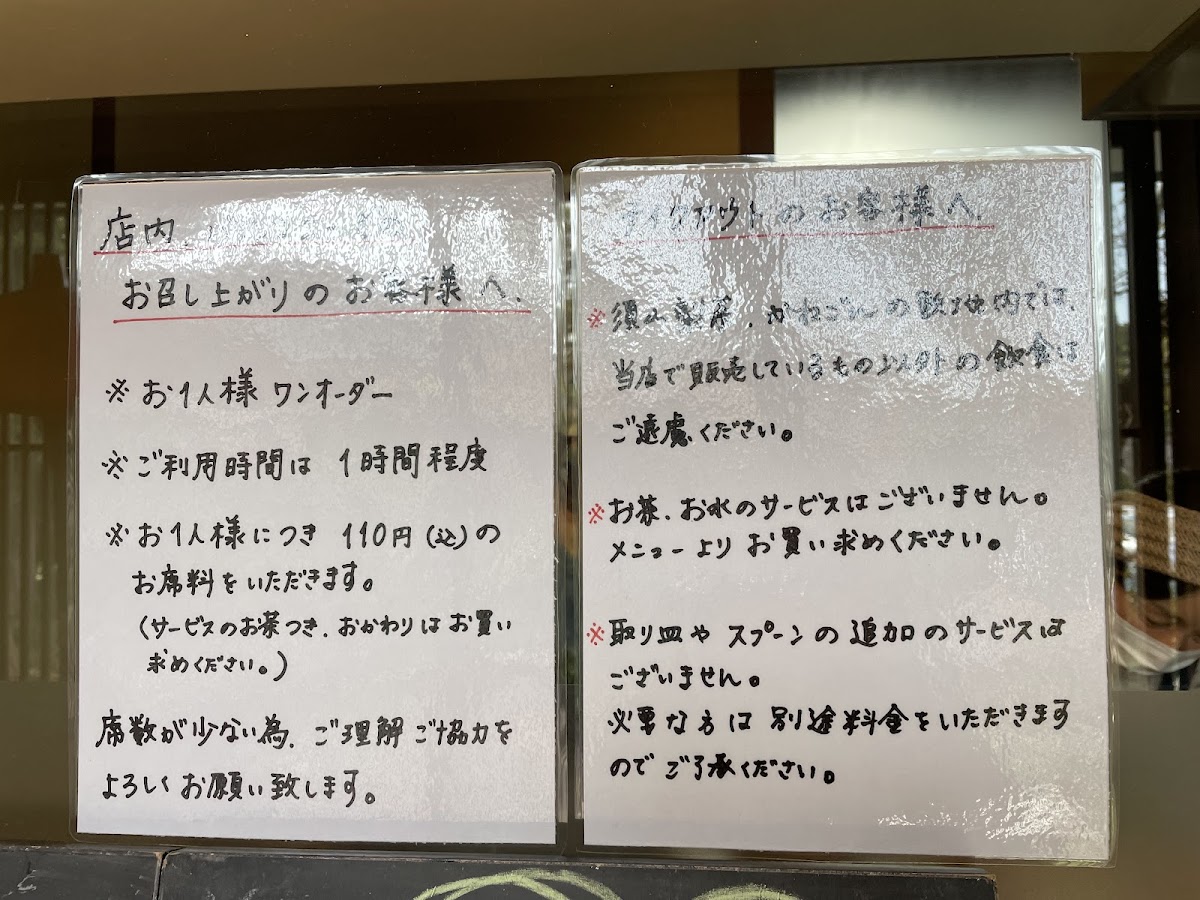 店内
お召し上がりのお客様へ.
※お1人様 ワンオーダー
※ご利用時間は 1時間程度
※お1人様につき 110円(込)の
お席料をいただきます。
(サービスのお茶つき.おかわりはお買い
求めください。)
席数が少ない為.ご理解ご協力を
よろしくお願い致します。
テイクアウトのお客様へ.
※須み製茶.かねごんの敷地内では、
当店で販売しているもの以外の飲食は
ご遠慮ください。
※お茶.お水のサービスはございません。
メニューよりお買い求めください。
※取り皿や スプーンの追加のサービスは
ございません。
必要な方は別途料金をいただきます
のでご了承ください。